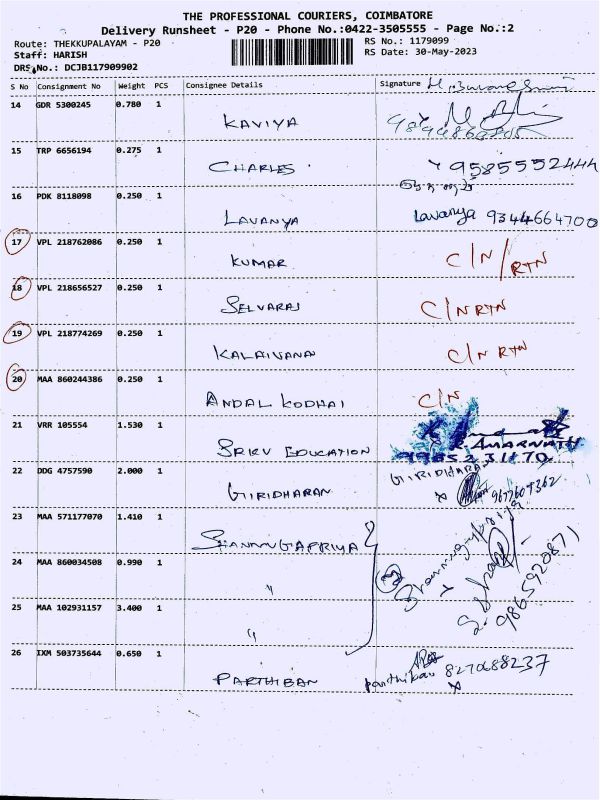 THE PROFESSIONAL COURIERS, COIMBATORE
Delivery Runsheet - P20 - Phone No.:0422-3505555 - Page No.:2
Route: THEKKUPALAYAM - P20
RS No.: 1179099
Staff: HARISH
RS Date: 30-May-2023
DRS No.: DCJB117909902
S No Consignment No Weight PCS Consignee Details Signature
14 GDR 5300245 0.780 1 KAVIYA
15 TRP 6656194 0.275 1 CHARLES 9585552444
16 PDK 8118098 0.250 1 LAVANYA Lavanya 9344664700
17 VPL 218762086 0.250 1 KUMAR C/N/RTN
18 VPL 218656527 0.250 1 SELVARAJ C/N RTN
19 VPL 218774269 0.250 1 KALAIVANAN C/N RTN
20 MAA 860244386 0.250 1 ANDAL KODHAI C/N
21 VRR 105554 1.530 1 SRKV EDUCATION R. AMARNATH
22 DDG 4757590 2.000 1 GIRIDHARAN GIRIDHARAN 9677609362
23 MAA 571177070 1.410 1 SHANMUGAPRIYA
24 MAA 860034508 0.990 1 "
25 MAA 102931157 3.400 1 " 3 Shanmugapriya 9865920871
26 IXM 503735644 0.650 1 PARTHIBAN Parthiban 8270688237